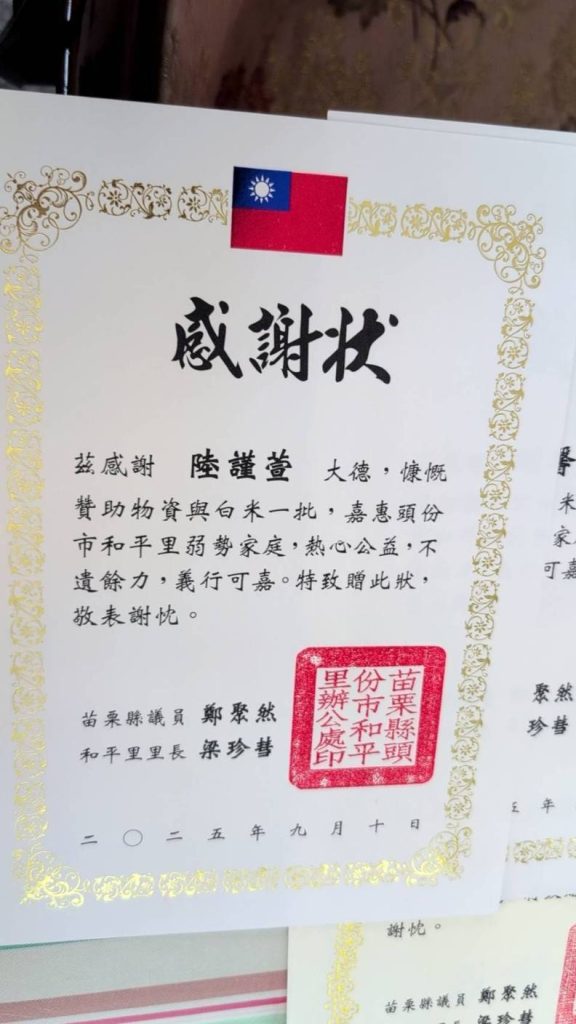 感謝狀
茲感謝 陸謹萱 大德，慷慨
贊助物資與白米一批，嘉惠頭份
市和平里弱勢家庭，熱心公益，不
遺餘力，義行可嘉。特致贈此狀，
敬表謝忱。
苗栗縣議員 鄭聚然
和平里里長 梁珍彗
苗栗縣頭
份市和平
里辦公處印
二〇二五年九月十日
米
家
可嘉
聚然
珍彗
年
謝忱。
苗栗縣議員 鄭聚然
梁珍彗